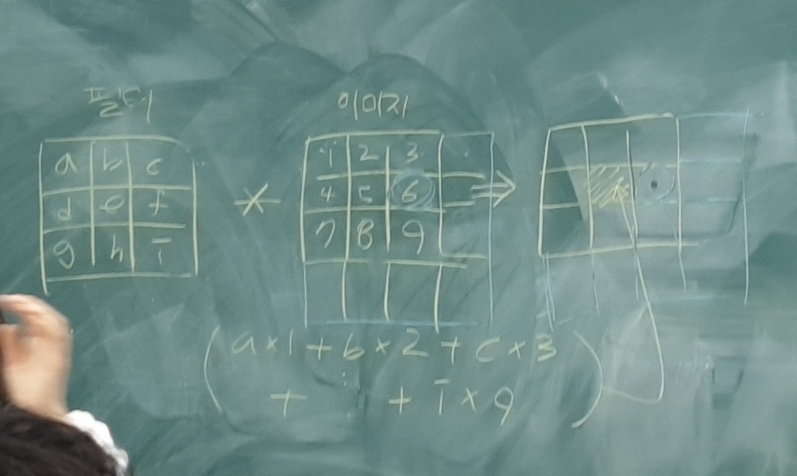 필터
이미지
a b c
d e f
g h i
*
1 2 3
4 5 6
7 8 9
⇒
(a×1+b×2+c×3
+ ⋮ + i×9)